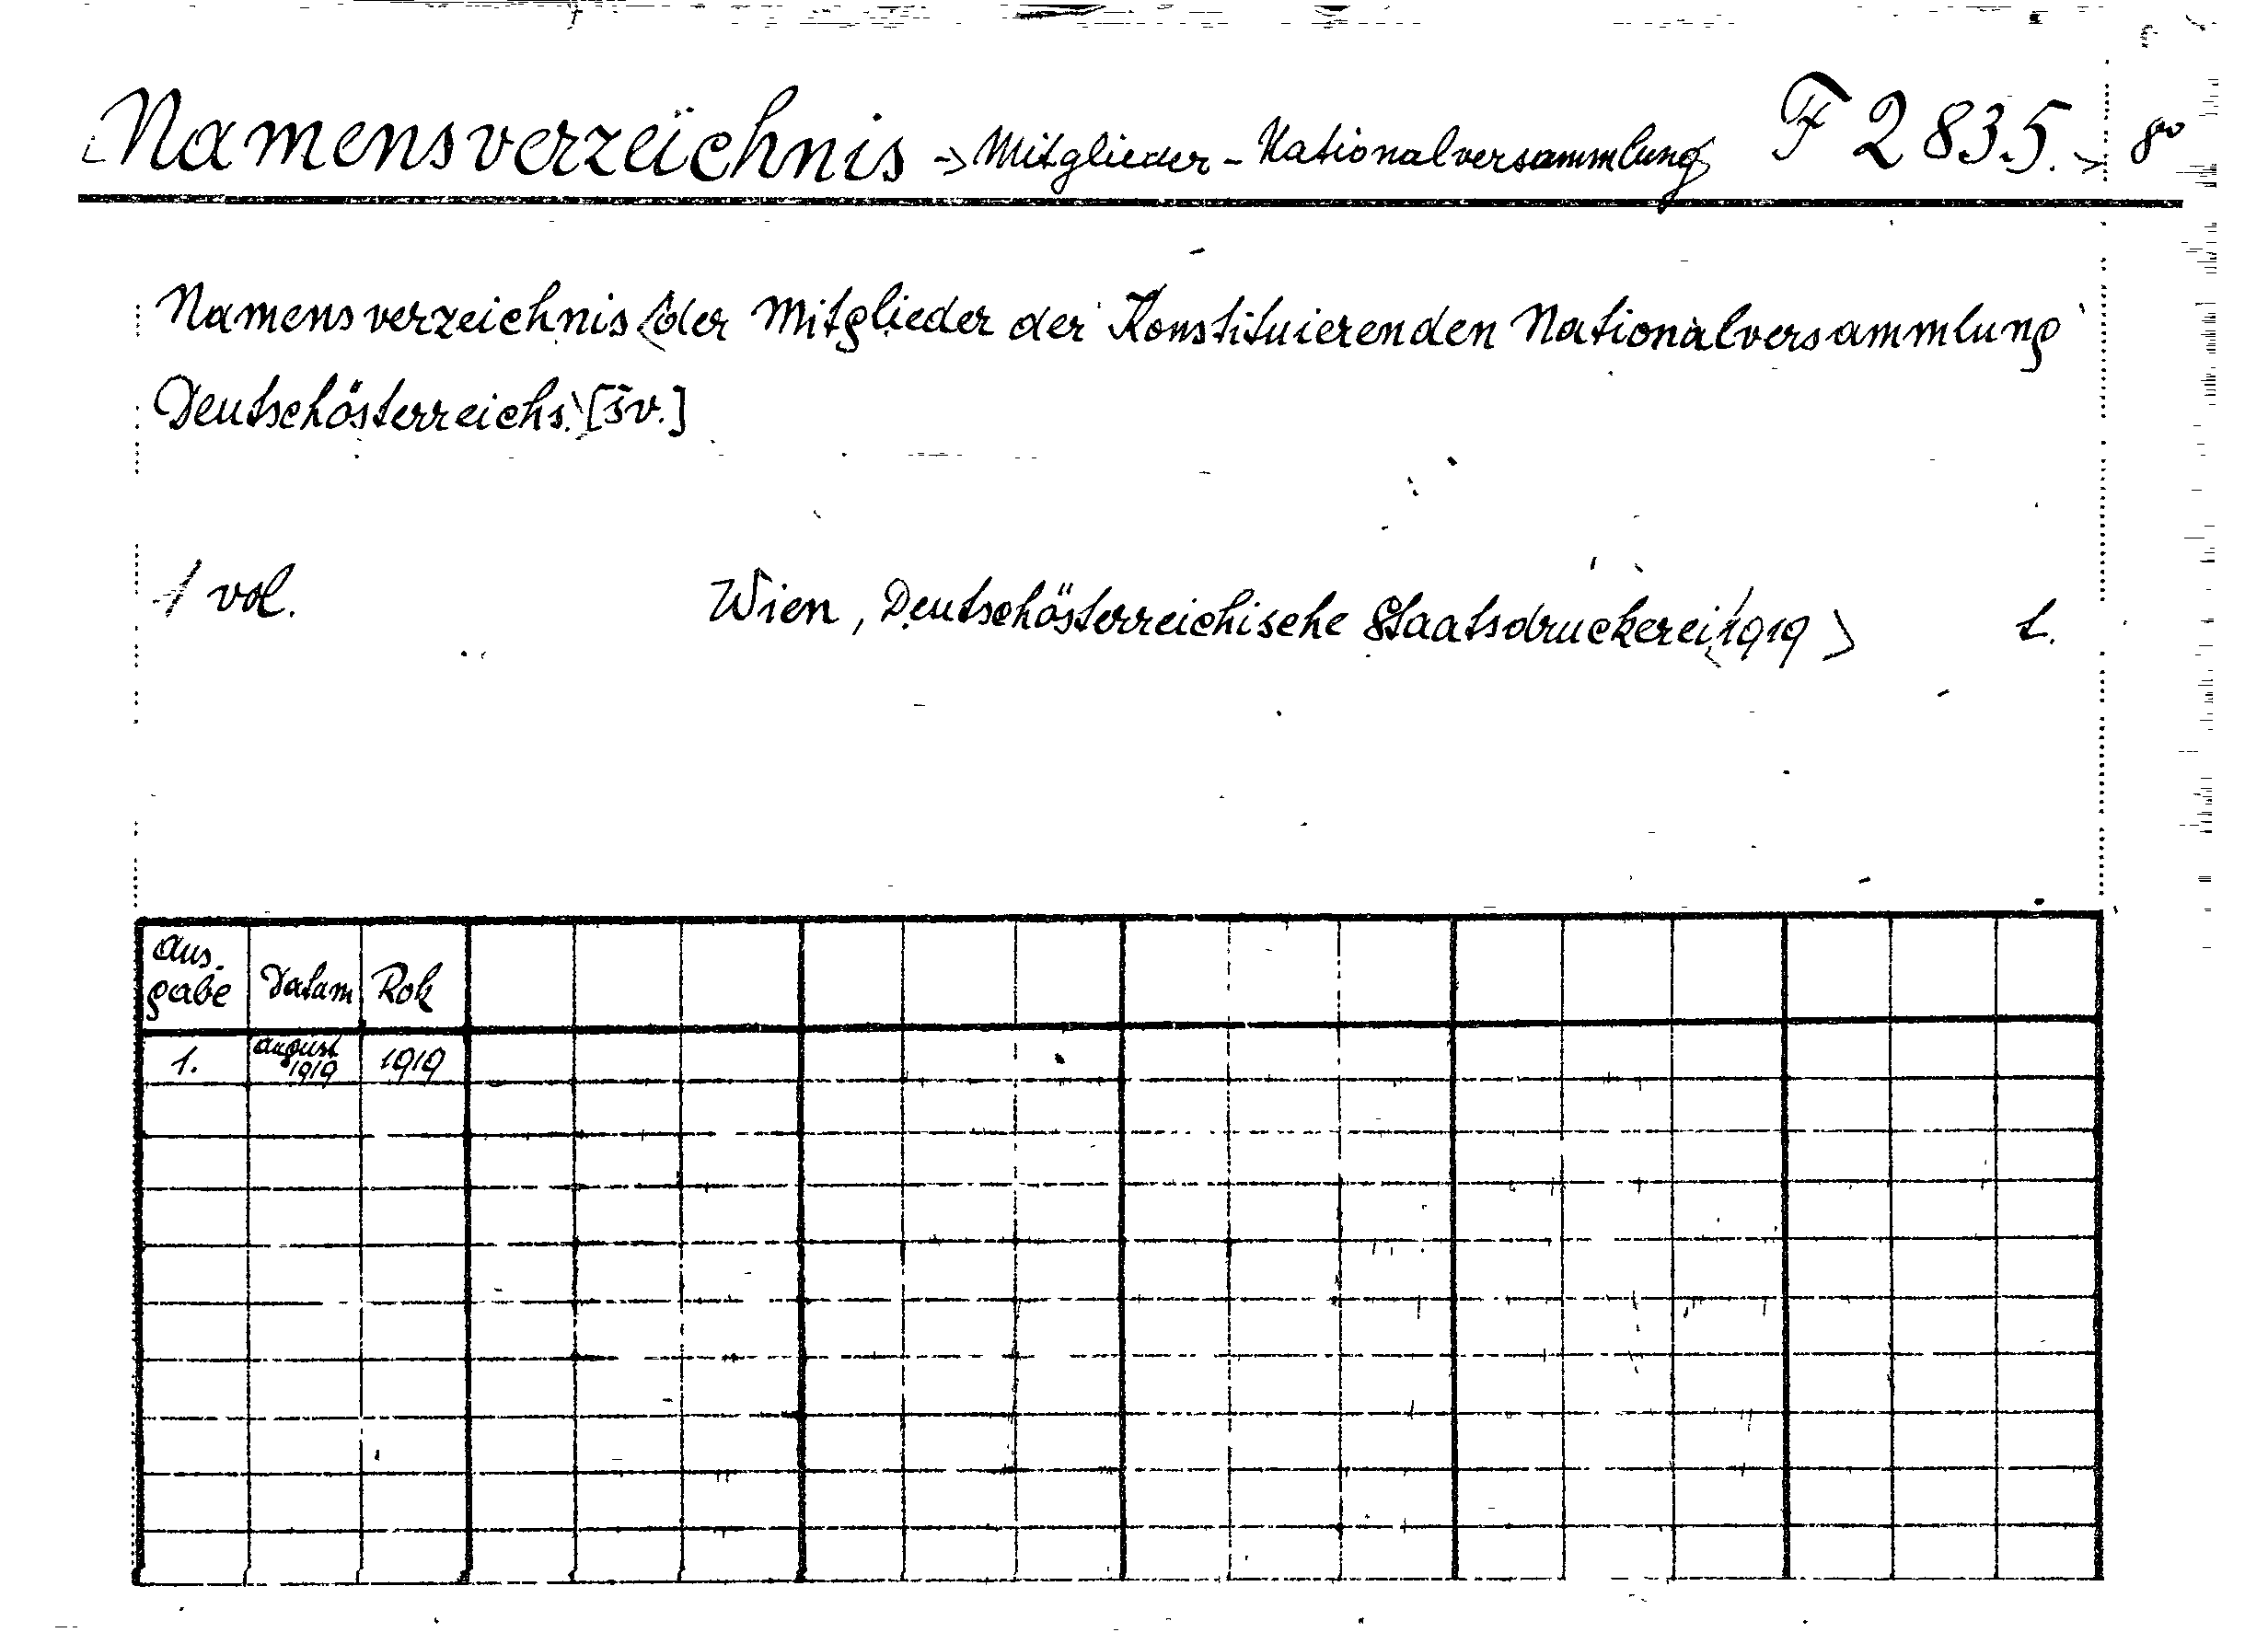 Namensverzeichnis -> Mitglieder - Nationalversammlung F 2835. 8°
Namensverzeichnis der Mitglieder der Konstituierenden Nationalversammlung
Deutschösterreichs. [šv.]
1 vol. Wien, Deutschösterreichische Staatsdruckerei 1919 L.
Aus-
gabe Datum Rok
1. August
1919 1919